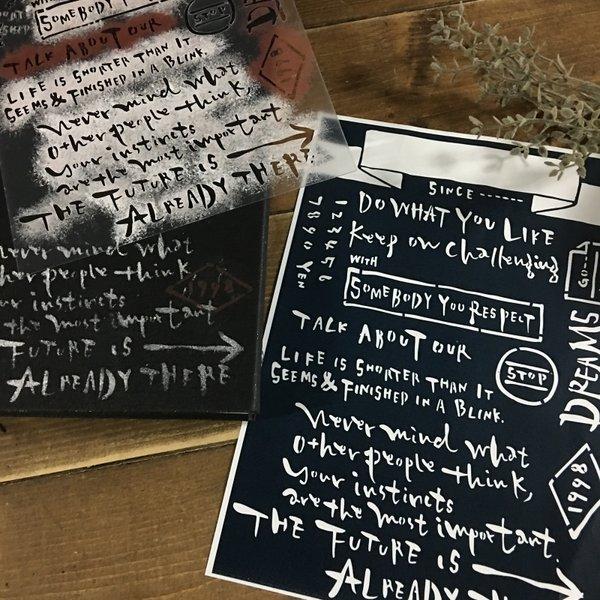 WITH
SOMEBODY YOU RESPECT
STOP
TALK ABOUT OUR
LIFE IS SHORTER THAN IT
SEEMS & FINISHED IN A BLINK.
Never mind what
other people think,
your instincts
are the most important
THE FUTURE IS
ALREADY THERE
Never mind what
other people think,
your instincts
are the most important
FUTURE IS
ALREADY THERE
1998
SINCE ------
DO WHAT YOU LIKE
Keep on challenging
WITH
SOMEBODY YOU RESPECT
123456
7890 YEN
TALK ABOUT OUR
STOP
LIFE IS SHORTER THAN IT
SEEMS & FINISHED IN A BLINK.
GO
DREAMS
1998
Never mind what
other people think,
your instincts
are the most important.
THE FUTURE IS
ALREADY THE